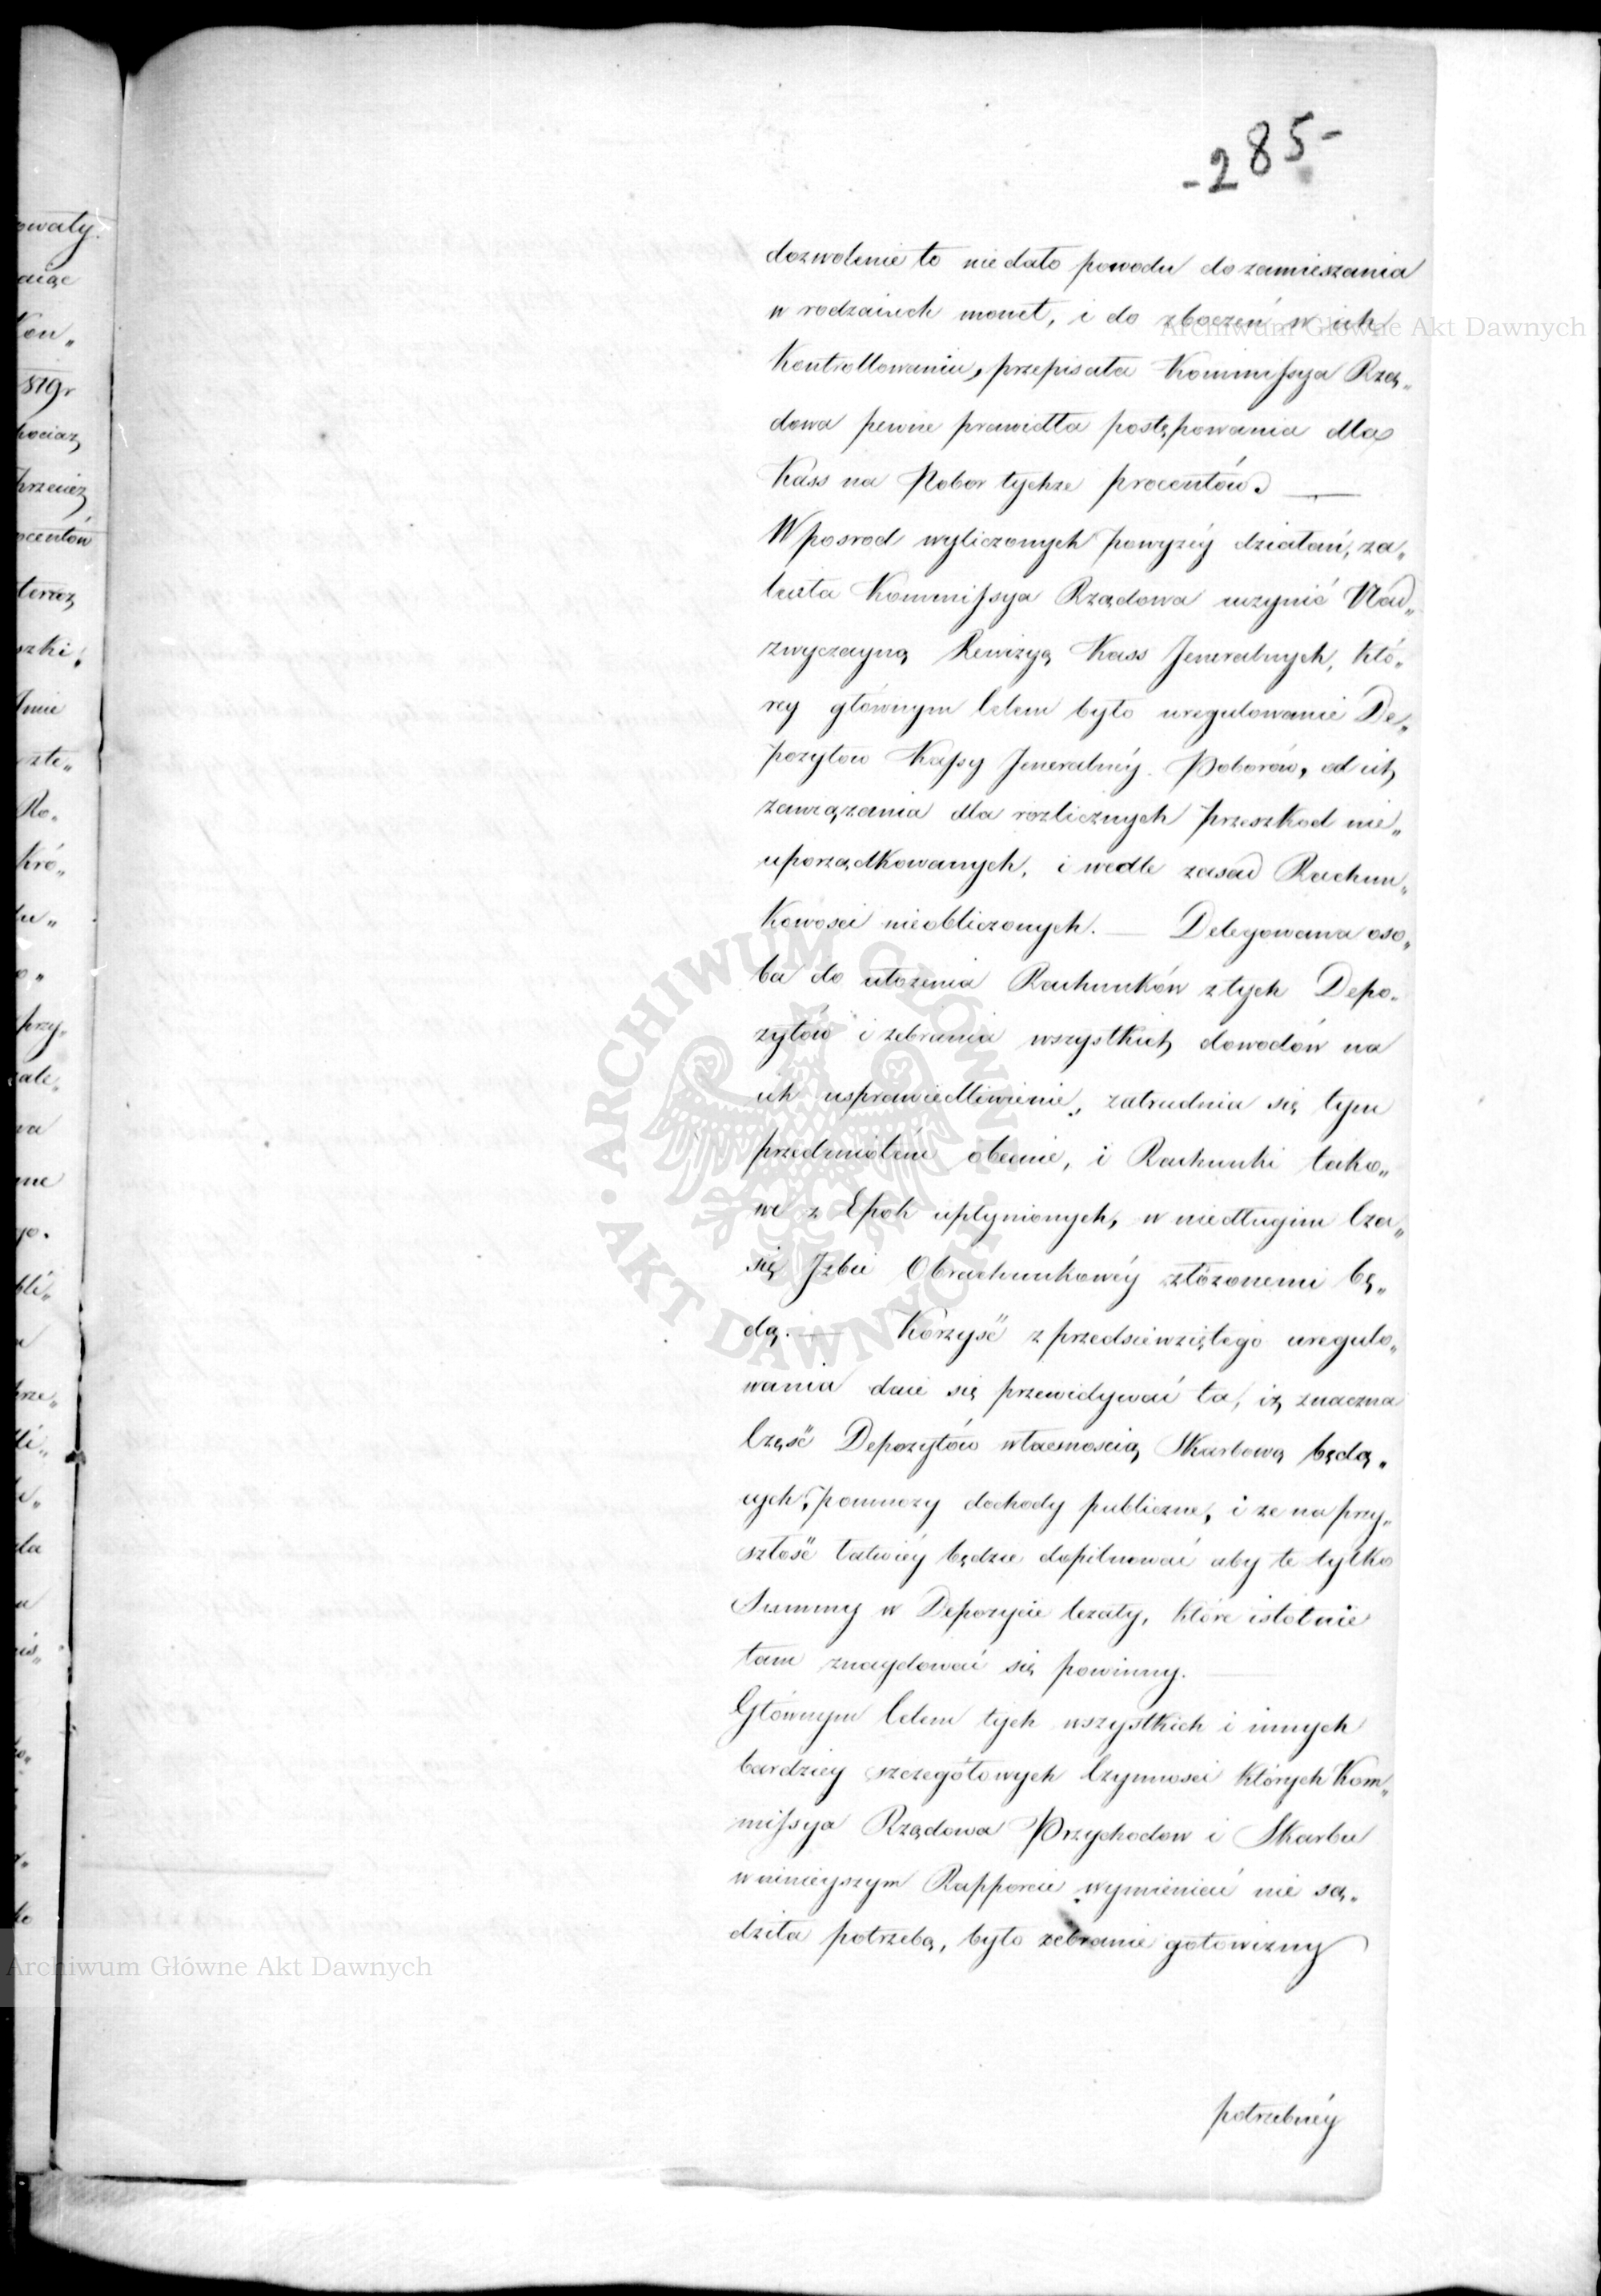 -285-
dozwolenie to nie dało powodu do zamieszania
w rodzaiach monet, i do zboczeń w ich
Kontrollowaniu, przepisała Kommissya Rzą„
dowa pewne prawidła postępowania dla
Kass na Pobor tychże procentów. —
W posrod wyliczonych powyżéy działań, za„
leciła Kommissya Rządowa uczynić Nad„
zwyczayną Rewizyą Kass Jeneralnych, któ„
rey głównym Celem było uregulowanie De„
pozytow Kassy Jeneralnéy Poborów, od ich
zawiązania dla rozlicznych przeszkod nie„
uporządkowanych, i wedle zasad Rachun„
Kowosci nieobliczonych. — Delegowana oso„
ba do ułożenia Rachunków z tych Depo„
zytów i zebrania wszystkich dowodów na
ich usprawiedliwienie, zatrudnia się tym
przedmiotem obecnie, i Rachunki tako„
we z Epok upłynionych, w niedługim Cza„
się Jzbie Obrachunkowéy złożonemi bę„
dą. — Korzyść z przedsiewziętego uregulo„
wania daie się przewidywać ta, iż znaczna
Część Depozytów własnoscią Skarbową będą„
cych, pomnoży dochody publiczne, i że na przy„
szłość łatwiéy będzie dopilnować aby te tylko
Summy w Depozycie leżały, które istotnie
tam znaydować się powinny. —
Głównym Celem tych wszystkich i innych
bardziey szczegółowych Czynnosci których Kom„
missya Rządowa Przychodow i Skarbu
w ninieyszym Rapporcie wymieniać nie są„
dziła potrzebą, było zebranie gotowizny
potrzebnéy
Archiwum Główne Akt Dawnych
Archiwum Główne Akt Dawnych
ARCHIWUM GŁÓWNE AKT DAWNYCH
owały.
aiąc
Kon„
819r
hociaż
przeciez
ocentów
teraz
szki
Jmie
Ro„
Kró„
przy„
ale„
wa
ne
go.
bli„
rze„
li„
la